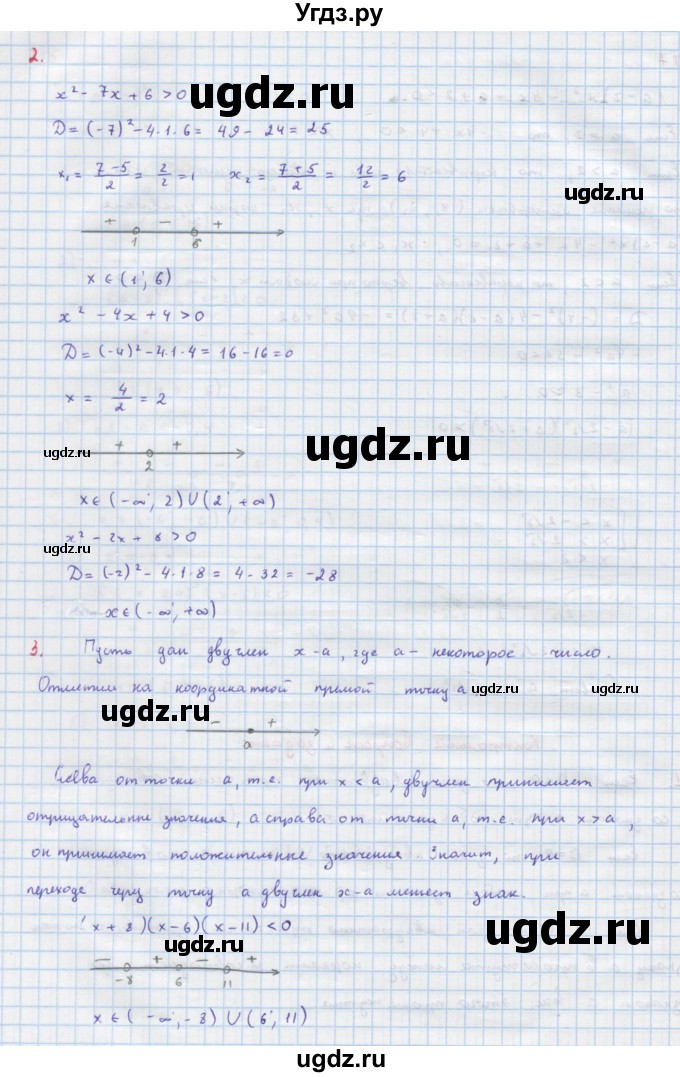 Угдз.ру
2.
x² - 7x + 6 > 0
D = (-7)² - 4·1·6 = 49 - 24 = 25
x₁ = (7-5)/2 = 2/2 = 1 x₂ = (7+5)/2 = 12/2 = 6
+ - +
1 6
x ∈ (1; 6)
x² - 4x + 4 > 0
D = (-4)² - 4·1·4 = 16 - 16 = 0
x = 4/2 = 2
+ +
2
x ∈ (-∞; 2) ∪ (2; +∞)
x² - 2x + 8 > 0
D = (-2)² - 4·1·8 = 4 - 32 = -28
x ∈ (-∞; +∞)
3. Пусть дан двучлен x-a, где a - некоторое число.
Отметим на координатной прямой точку a
- +
a
Слева от точки a, т.е. при x < a, двучлен принимает
отрицательные значения, а справа от точки a, т.е. при x > a,
он принимает положительные значения. Значит, при
переходе через точку a двучлен x-a меняет знак.
(x + 8)(x - 6)(x - 11) < 0
- + - +
-8 6 11
x ∈ (-∞; -8) ∪ (6; 11)
ugdz.ru
ugdz.ru
ugdz.ru
ugdz.ru
ugdz.ru
ugdz.ru
ugdz.ru
ugdz.ru
ugdz.ru
ugdz.ru
ugdz.ru
ugdz.ru
ugdz.ru